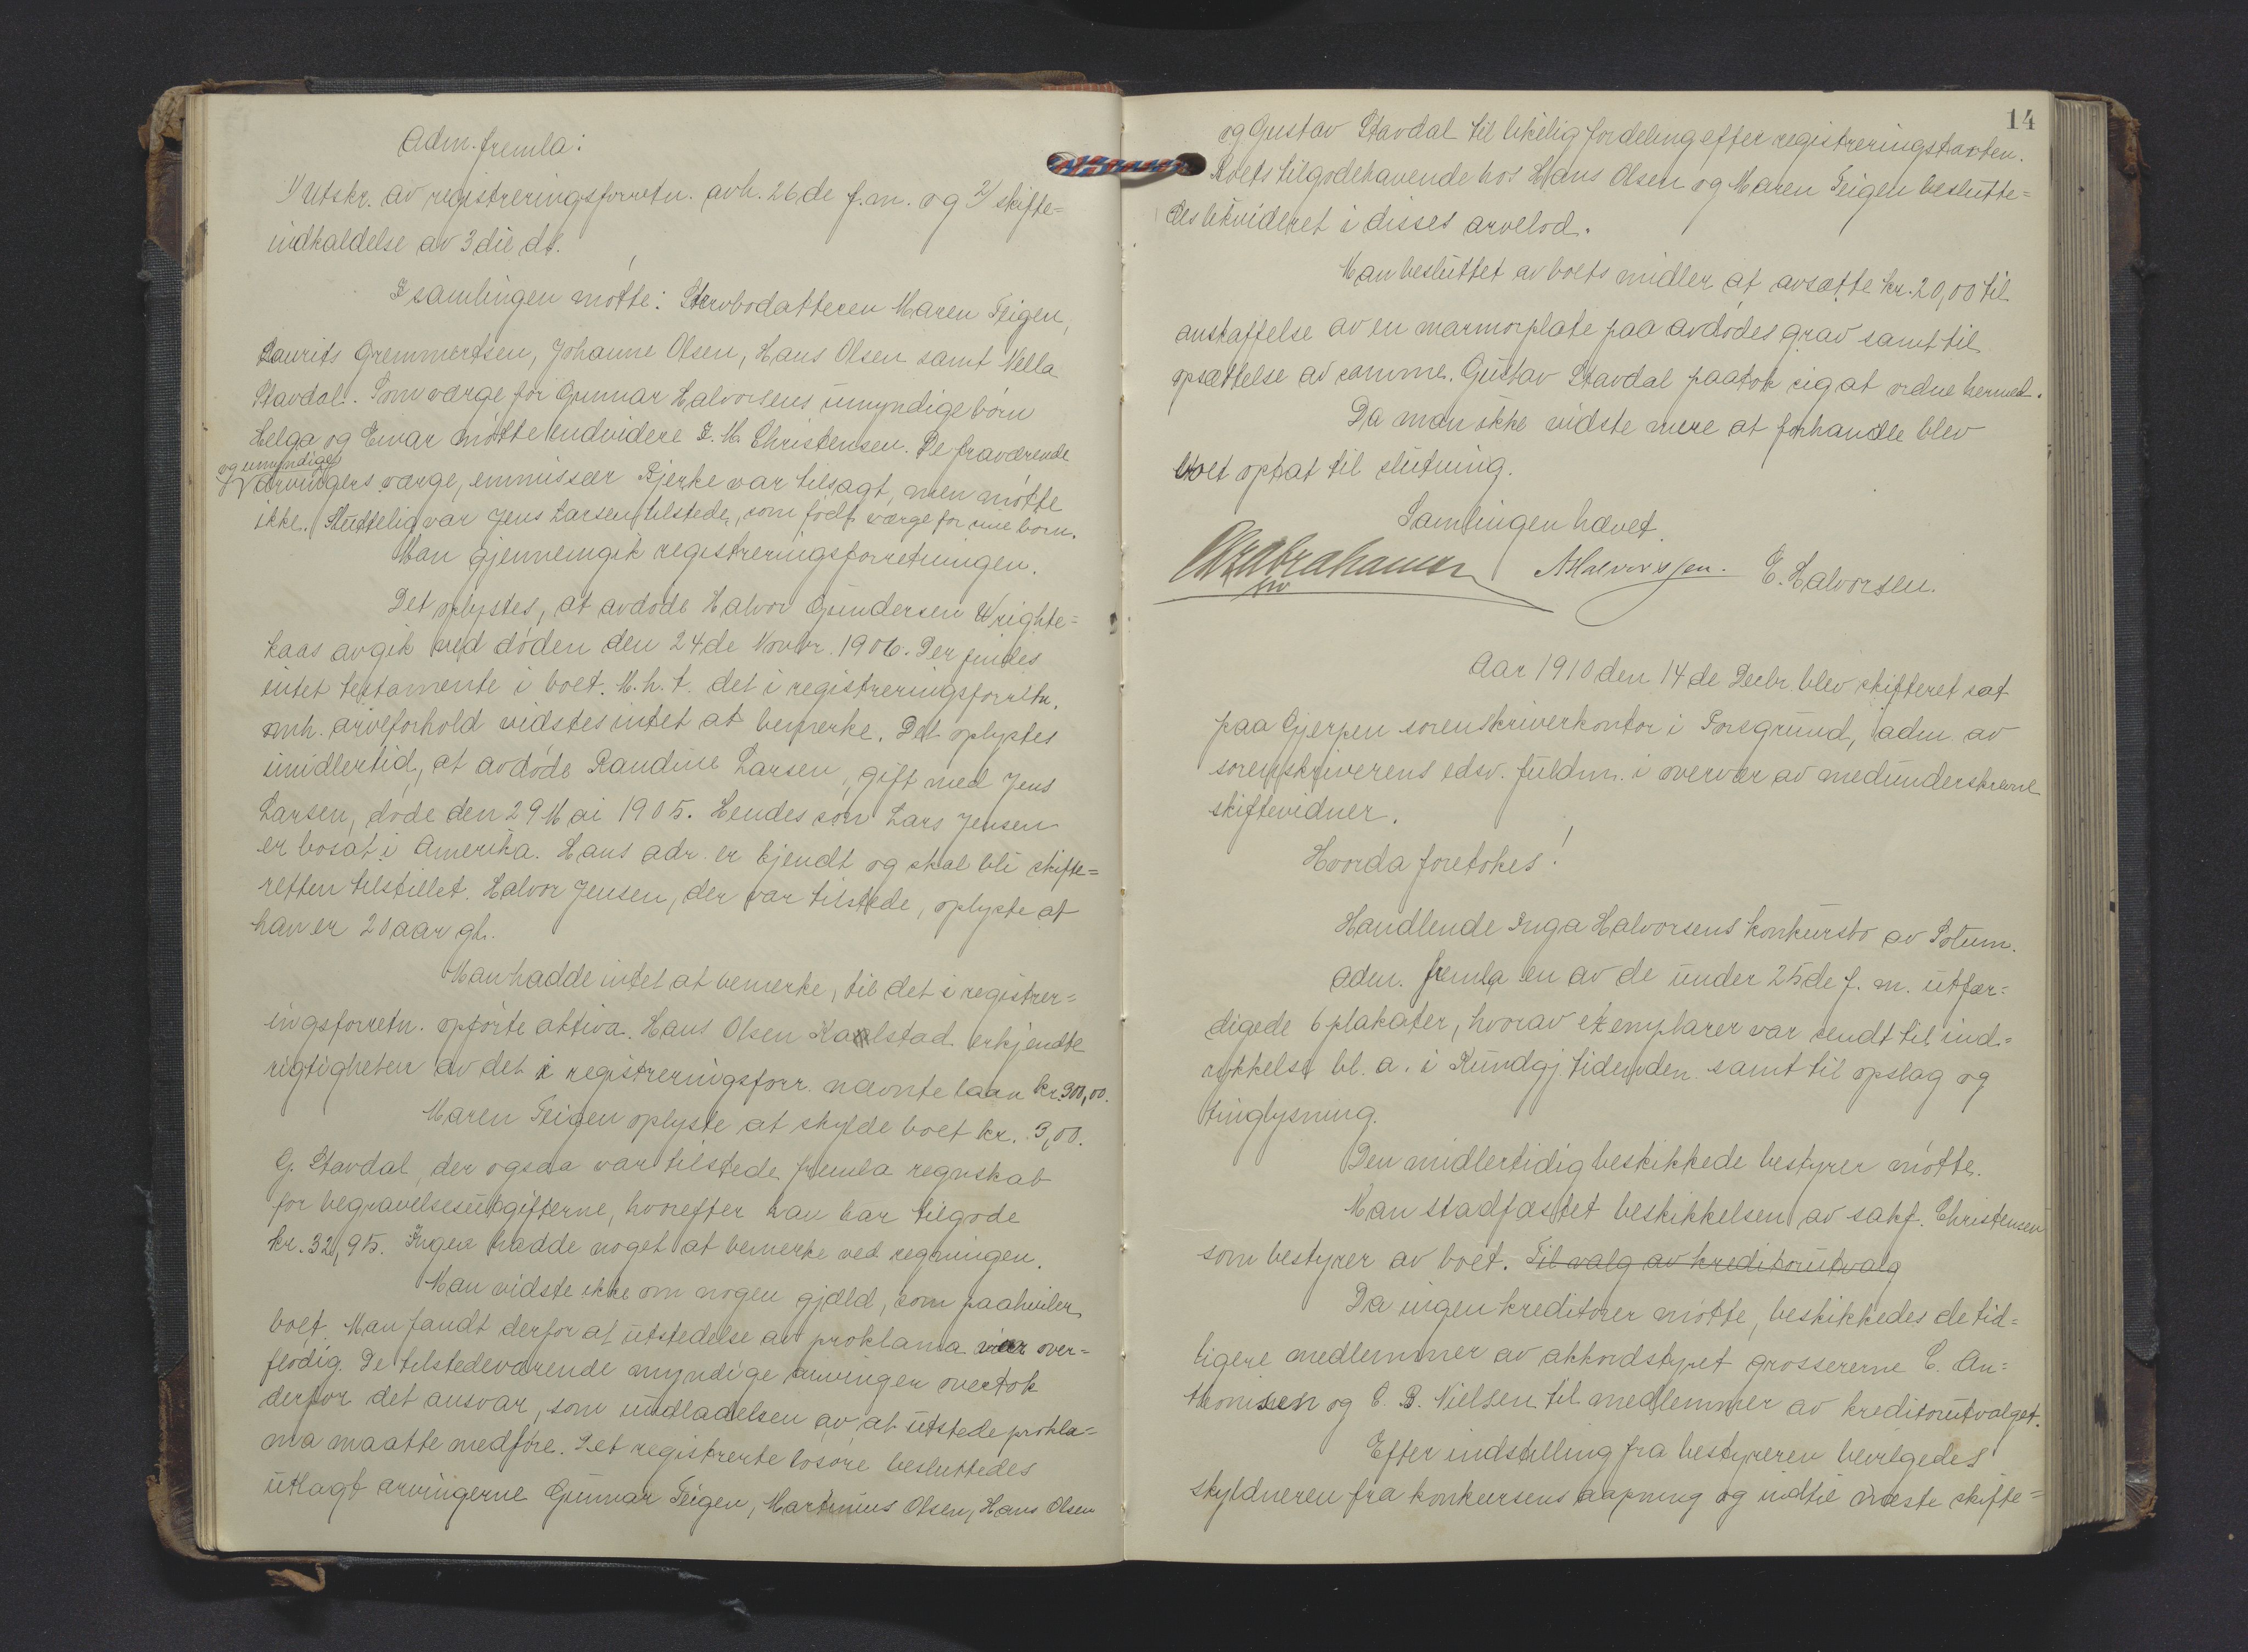 Adm. fremla:
1/ Utskr. av registreringsforretn. avh. 26de f.m. og 2/ skifte=
indkaldelse av 3die ds.
I samlingen møtte: Stervbodatteren Maren Teigen,
Laurits Gremmertsen, Johanne Olsen, Hans Olsen samt Nella
Stavdal. Som værge for Gunnar Halvorsens umyndige børn
Helga og Einar møtte endvidere I. M. Christensen. De fraværende
og umyndige
arvingers værge, emmissær Bjerke var tilsagt, men møtte
ikke. Sluttelig var Jens Larsen tilstede, som født værge for sine børn.
Man gjennemgik registreringsforretningen.
Det oplystes, at avdøde Halvor Gundersen Wrighte=
kaas avgik ved døden den 24de Novbr. 1906. Der findes
intet testamente i boet. M.h.t. det i registreringsforretn.
omh. arveforhold vidstes intet at bemerke. Det oplystes
imidlertid, at avdøde Randine Larsen, gift med Jens
Larsen, døde den 29 Mai 1905. Hendes søn Lars Jensen
er bosat i Amerika. Hans adr. er kjendt og skal bli skifte=
retten tilstillet. Halvor Jensen, der var tilstede, oplyste at
han er 20 aar gl.
Man hadde intet at bemerke, til det i registrer=
ingsforretn. opførte aktiva. Hans Olsen Karlstad erkjendte
rigtigheten av det i registreringsforr. nævnte laan kr. 300,00.
Maren Teigen oplyste at skylde boet kr. 9,00.
G. Stavdal, der ogsaa var tilstede fremla regnskab
for begravelsesutgifterne, hvorefter han har tilgode
kr. 32,95. Ingen hadde noget at bemerke ved regningen.
Man vidste ikke om nogen gjæld, som paahviler
boet. Man fandt derfor at utstedelse av proklama var over=
flødig. De tilstedeværende myndige arvinger overtok
derfor det ansvar, som undladelsen av at utstede prokla=
ma maatte medføre. Det registrerte løsøre besluttedes
utlagt arvingerne Gunnar Teigen, Martinius Olsen, Hans Olsen
14
og Gustav Stavdal til likelig fordeling efter registreringstaxten.
Boets tilgodehavende hos Hans Olsen og Maren Teigen beslutte=
des likvideret i disses arvelod.
Man besluttet av boets midler at avsætte kr. 20,00 til
anskaffelse av en marmorplate paa avdødes grav samt til
opsættelse av samme. Gustav Stavdal paatok sig at ordne hermed.
Da man ikke vidste mere at forhandle blev
boet optat til slutning.
Samlingen hævet.
Abrahamsen A Halvorsen. E. Halvorsen.
Aar 1910 den 14de Decbr. blev skifteret sat
paa Gjerpen sorenskriverkontor i Porsgrund, adm. av
sorenskriverens edsv. fuldm. i overvær av medunderskrevne
skiftevidner.
Hvorda foretokes!
Handlende Inga Halvorsens konkursbo av Solum.
Adm. fremla en av de under 25de f. m. utfær=
digede 6 plakater, hvorav exemplarer var sendt til ind=
rykkelse bl. a. i Kundgj. tidenden samt til opslag og
tinglysning.
Den midlertidig beskikkede bestyrer møtte.
Man stadfæstet beskikkelsen av sakf. Christensen
som bestyrer av boet. Til valg av kreditorutvalg
Da ingen kreditorer møtte, beskikkedes de tid=
ligere medlemmer av akkordstyret grossererne C. An=
thonisen og C. B. Nielsen til medlemmer av kreditorutvalget.
Efter indstilling fra bestyreren bevilgedes
skyldneren fra konkursens aapning og indtil næste skifte=